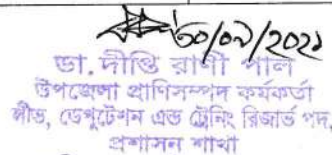 ৩০/০৯/২০২১
ডা. দীপ্তি রাণী পাল
উপজেলা প্রাণিসম্পদ কর্মকর্তা
লীভ, ডেপুটেশন এন্ড ট্রেনিং রিজার্ভ পদ,
প্রশাসন শাখা